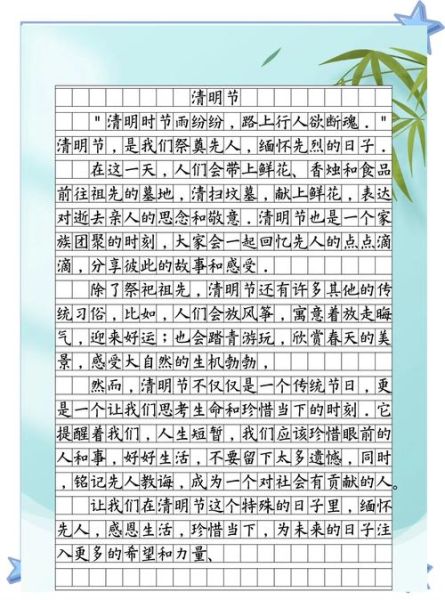 清明节
"清明时节雨纷纷，路上行人欲断魂．"
清明节，是我们祭奠先人，缅怀先烈的日子．
在这一天，人们会带上鲜花、香烛和食品
前往祖先的墓地，清扫坟墓，献上鲜花，表达
对逝去亲人的思念和敬意．清明节也是一个家
族团聚的时刻，大家会一起回忆先人的点点滴
滴，分享彼此的故事和感受．
除了祭祀祖先，清明节还有许多其他的传
统习俗，比如，人们会放风筝，寓意着放走晦
气，迎来好运；也会踏青游玩，欣赏春天的美
景，感受大自然的生机勃勃，
然而，清明节不仅仅是一个传统节日，更
是一个让我们思考生命和珍惜当下的时刻．它
提醒着我们，人生短暂，我们应该珍惜眼前的
人和事，好好生活，不要留下太多遗憾，同时
，铭记先人教诲，成为一个对社会有贡献的人。
让我们在清明节这个特殊的日子里，缅怀
先人，感恩生活，珍惜当下，为未来的日子注
入更多的希望和力量、